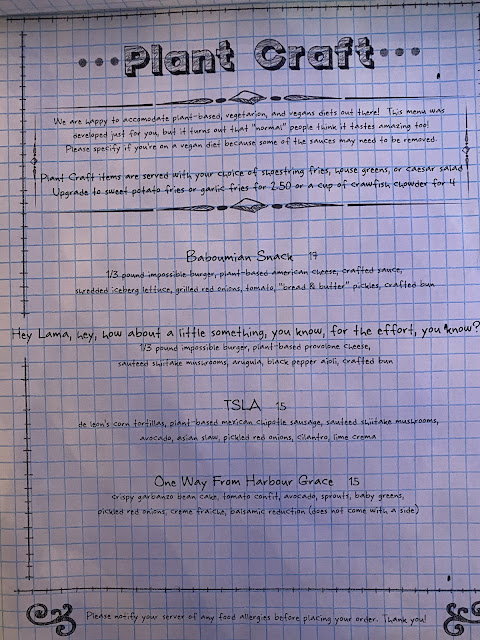 Plant Craft
We are happy to accomodate plant-based, vegetarian, and vegans diets out there! This menu was
developed just for you, but it turns out that "normal" people think it tastes amazing too!
Please specify if you're on a vegan diet because some of the sauces may need to be removed.
Plant Craft items are served with your choice of shoestring fries, house greens, or caesar salad
Upgrade to sweet potato fries or garlic fries for 2.50 or a cup of crawfish chowder for 4
Baboumian Snack 17
1/3 pound impossible burger, plant-based american cheese, crafted sauce,
shredded iceberg lettuce, grilled red onions, tomato, "bread & butter" pickles, crafted bun
Hey Lama, hey, how about a little something, you know, for the effort, you know?
1/3 pound impossible burger, plant-based provolone cheese,
sauteed shiitake mushrooms, arugula, black pepper aioli, crafted bun
TSLA 15
de leon's corn tortillas, plant-based mexican chipotle sausage, sauteed shiitake mushrooms,
avocado, asian slaw, pickled red onions, cilantro, lime crema
One Way From Harbour Grace 15
crispy garbanzo bean cake, tomato confit, avocado, sprouts, baby greens,
pickled red onions, creme fraiche, balsamic reduction (does not come with a side)
Please notify your server of any food allergies before placing your order. Thank you!